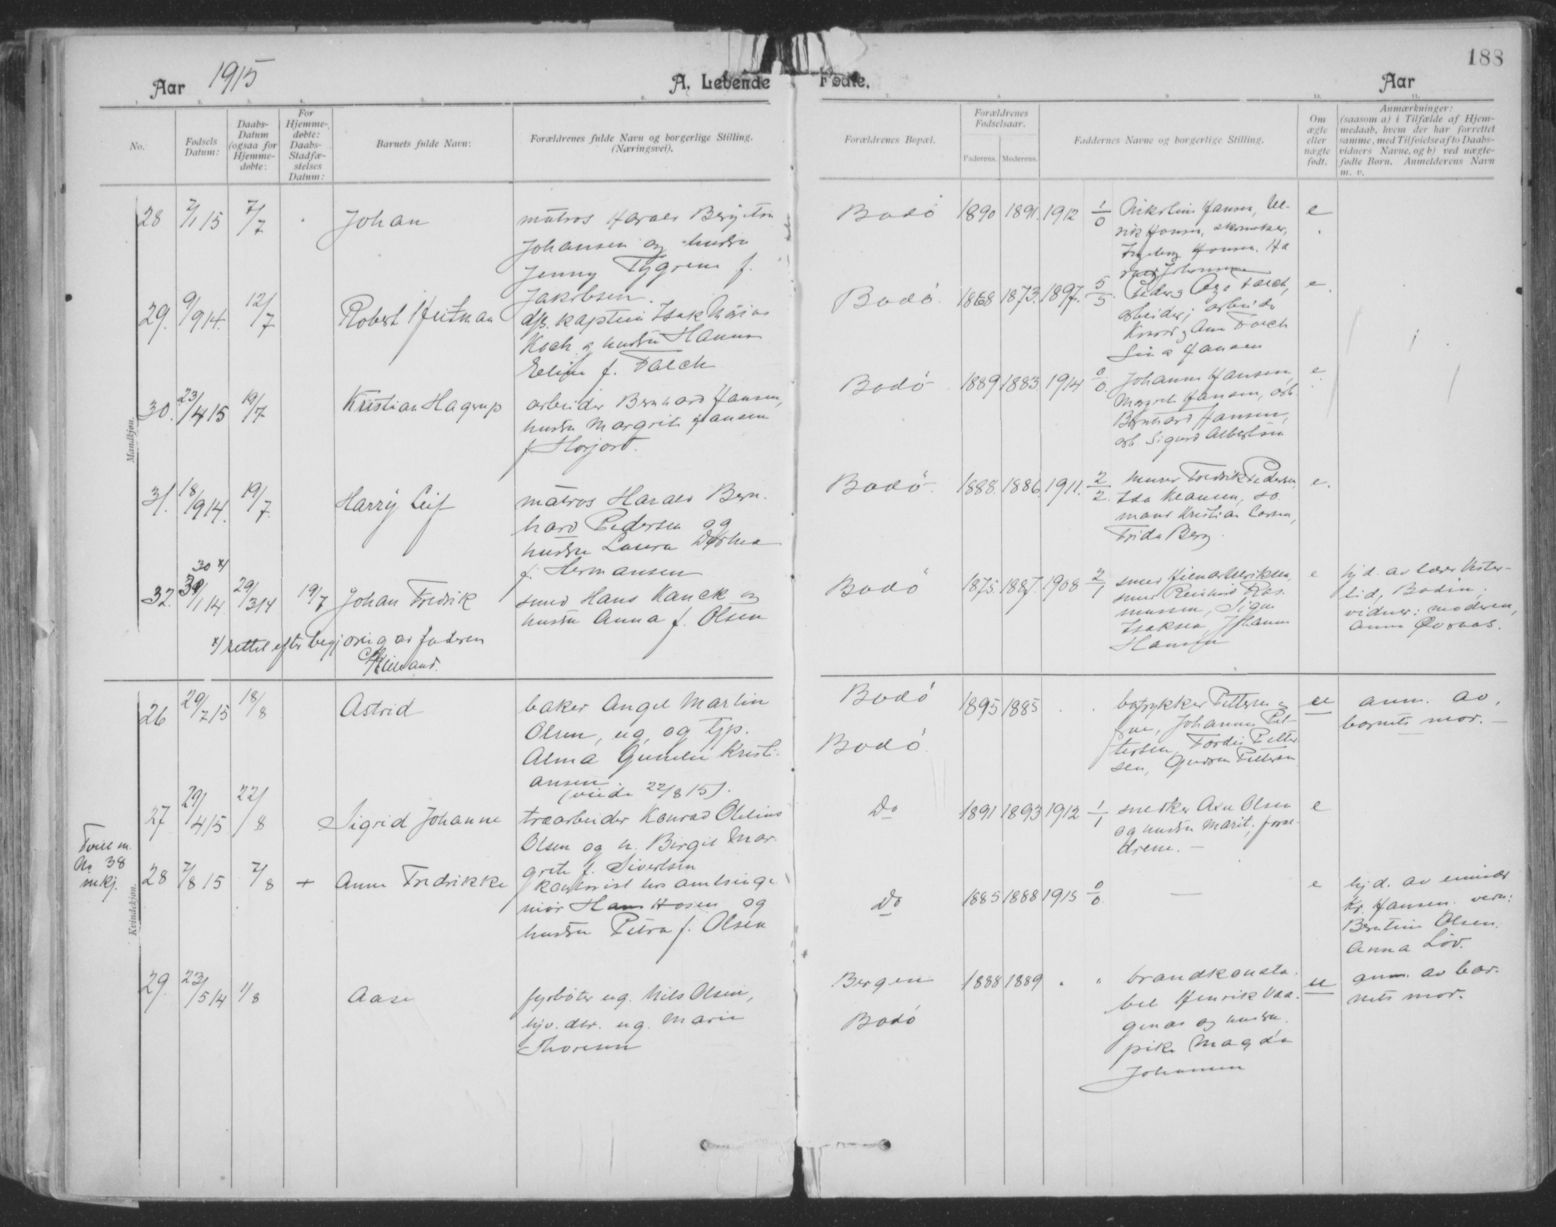 188
Aar 1915 A. Levende Fødte. Aar
No.
Fødsels Datum:
Daabs-Datum (ogsaa for Hjemmedøbte:
For Hjemmedøbte: Daabs-Stadfæstelses Datum:
Barnets fulde Navn:
Forældrenes fulde Navn og borgerlige Stilling. (Næringsvei).
Forældrenes Bopæl.
Forældrenes Fødselsaar.
Faderens. Moderens.
Faddernes Navne og borgerlige Stilling.
Om ægte eller uægte født.
Anmærkninger:
(saasom a) i Tilfælde af Hjem-
medaab, hvem der har forrettet
samme, med Tilføielse af to Daabs-
vidners Navne, og b) ved uægte-
fødte Børn. Anmelderens Navn
m. v.
Mandkjøn.
28 2/1 15 7/7 Johan
matros Harald Bergiton
Johansen og hustru
Jenny Tygrena f.
Jakobsen.
Bodø 1890 1891 1912 1/0
Nikolius Hansen,
Ingeborg Hansen.
Johansen
e
29. 9/9 14. 12/7 Robert Heitman
dps. kaptein Isak
Koch og hustru Hanna
f. Falch
Bodø. 1868 1873. 1897. 5/5
Peder og Falch,
arbeider;
og Anna Falch
Hansen
e.
30. 23/4 15 19/7 Kristian Hagerup
arbeider Bernhard Hansen,
hustru Margrit Hansen
f.
Bodø 1889 1883 1914 0/0
Johanne Hansen,
Margrit Hansen, arb
Bernhard Hansen,
arb Sigurd Albertsen
e
31. 18/9 14. 19/7 Harry Leif
matros Harald Bern-
hard Pedersen og
hustru Laura Dorthea
f. Hermansen
Bodø. 1888. 1886. 1911. 2/2
murer Fredrik Pedersen,
Ida Klausen, sø
mand Kristian Larsen,
Frida Berg.
e.
30 x)
32. 30/1 14 29/3 14 19/7 Johan Fredrik
smed Hans Kanck og
hustru Anna f. Olsen
Bodø 1875. 1887. 1908 2/1
smed
smed Reinhard Ras
mussen, Signe
Isaksen, Hanna
Hansen
e
hjd. av lærer Vister-
lid, Bodin;
vidner: moderen,
Anna
x) rettet efter begjæring av faderen
Kvindekjøn.
26 29/7 15 18/8 Astrid
baker Angel Martin
Olsen, ug. og tjp.
Alma Kristi-
ansen
(viede 22/8 15).
Bodø
Bodø.
1895 1885
bogtrykker Pettersen og
frue, Johanne Pet-
tersen, Tordis Petter
sen, Gudrun Pettersen
ue
anm. av
barnets mor. —
27 29/4 15 22/8 Sigrid Johanne
træarbeider Konrad
Olsen og h. Birgit Mar-
grete f. Sivertsen
Do 1891 1893 1912 1/1
snedker Olsen
og hustru Marit, foræl-
drene. —
e
Tvill m.
No 38
mkj.
28 7/8 15 7/8 + Anna Fredrikke
kontorist hos amtsinge-
niør Hans Hosen og
hustru Petra f. Olsen
Do 1885 1888 1915 0/0 —
e
hjd. av
Kr. Hansen.
Olsen
Anna Løv.
29. 23/5 14 1/8 Aase
fyrbøter ug. Nils Olsen,
hjv. dtr. ug. Marie
Thoresen
Bergen
Bodø
1888 1889
brandkonsta-
bel Henrik Vaa-
genas og hustru.
pike Magda
Johansen
ue
anm. av bar-
nets mor.